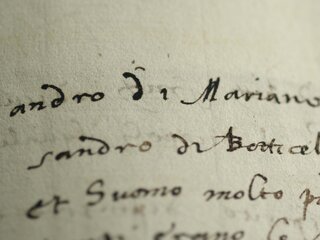 andro di Mariano
sandro di Botticel
et huomo molto pi